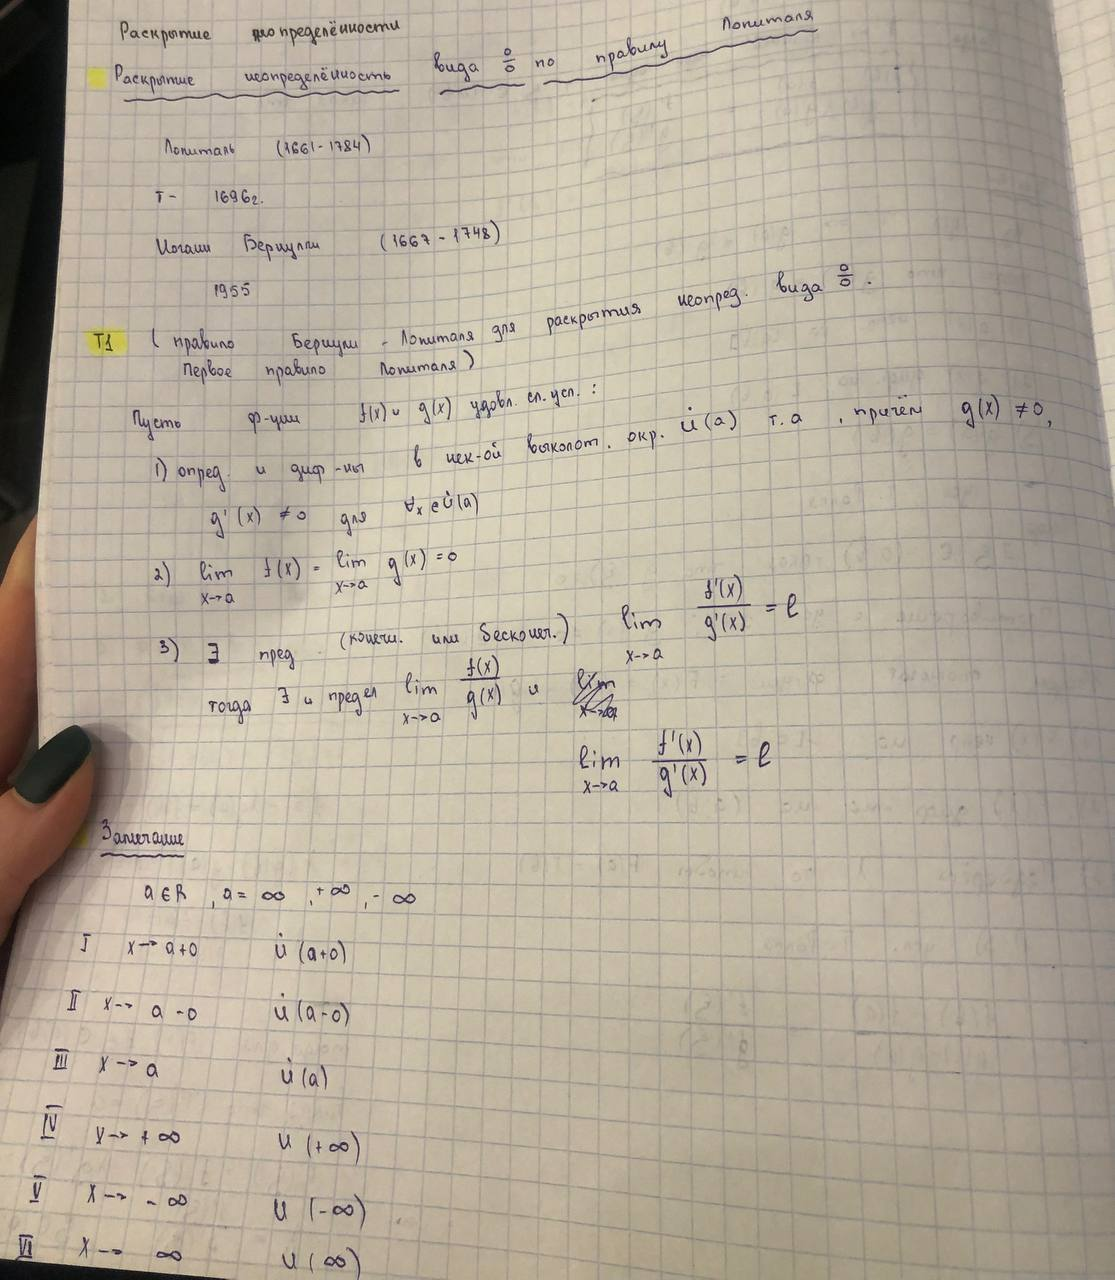 Раскрытие неопределённости
Раскрытие неопределённость вида 0/0 по правилу Лопиталя
Лопиталь (1661-1784)
Т- 1696г.
Иоганн Бернулли (1667-1748)
1955
Т1 (правило Бернули - Лопиталя для раскрытия неопред. вида 0/0.
Первое правило Лопиталя)
Пусть ф-ции f(x) и g(x) удовл. сл. усл.:
1) опред. и диф-мы в нек-ой выколот. окр. U̇(a) т.a, причём g(x) ≠ 0,
g'(x) ≠ 0 для ∀x ∈ U̇(a)
2) lim x→a f(x) = lim x→a g(x) = 0
3) ∃ пред. (конечн. или бесконеч.) lim x→a f'(x)/g'(x) = l
тогда ∃ и предел lim x→a f(x)/g(x) и
lim x→a f'(x)/g'(x) = l
Замечание
a ∈ R, a = ∞, +∞, -∞
I x→a+0 U̇(a+0)
II x→a-0 U̇(a-0)
III x→a U̇(a)
IV x→+∞ U(+∞)
V x→-∞ U(-∞)
VI x→∞ U(∞)